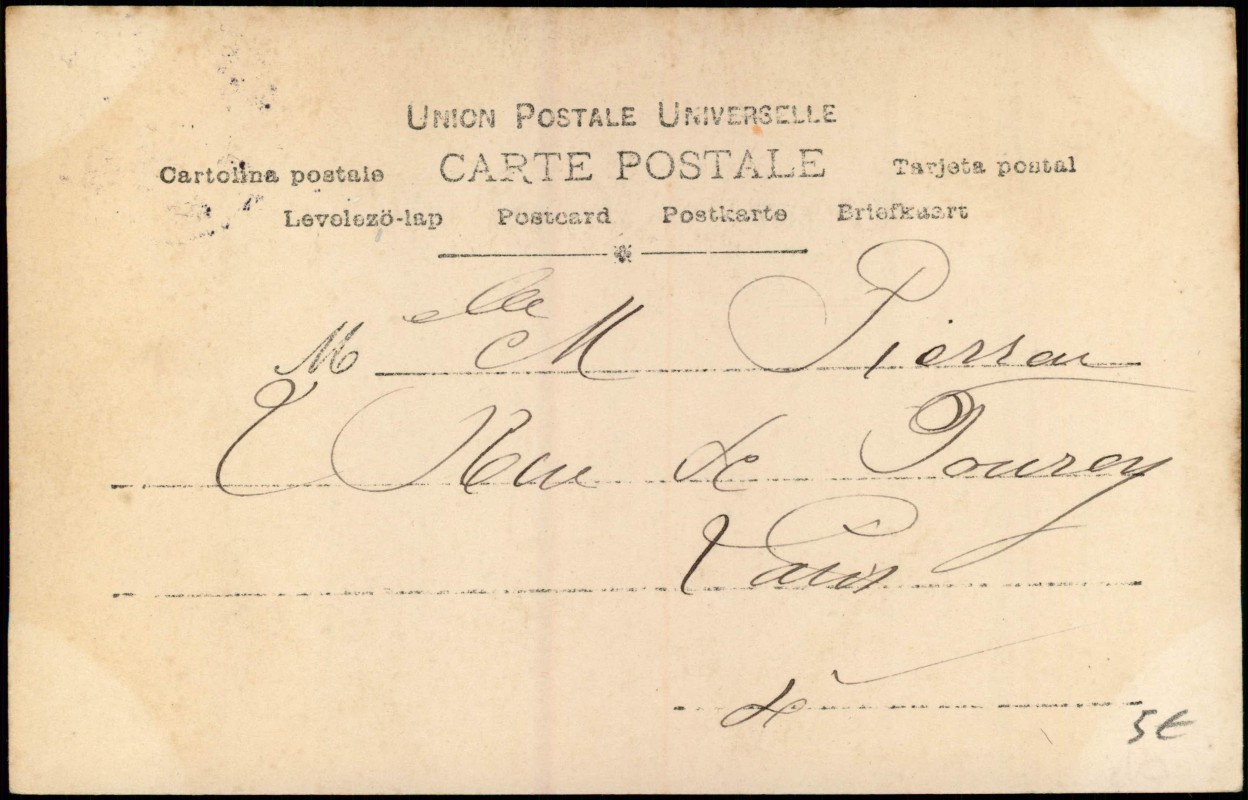 UNION POSTALE UNIVERSELLE
Cartolina postale CARTE POSTALE Tarjeta postal
Levelezö-lap Postcard Postkarte Briefkaart
Melle M Pierson
Rue de
Paris
5€